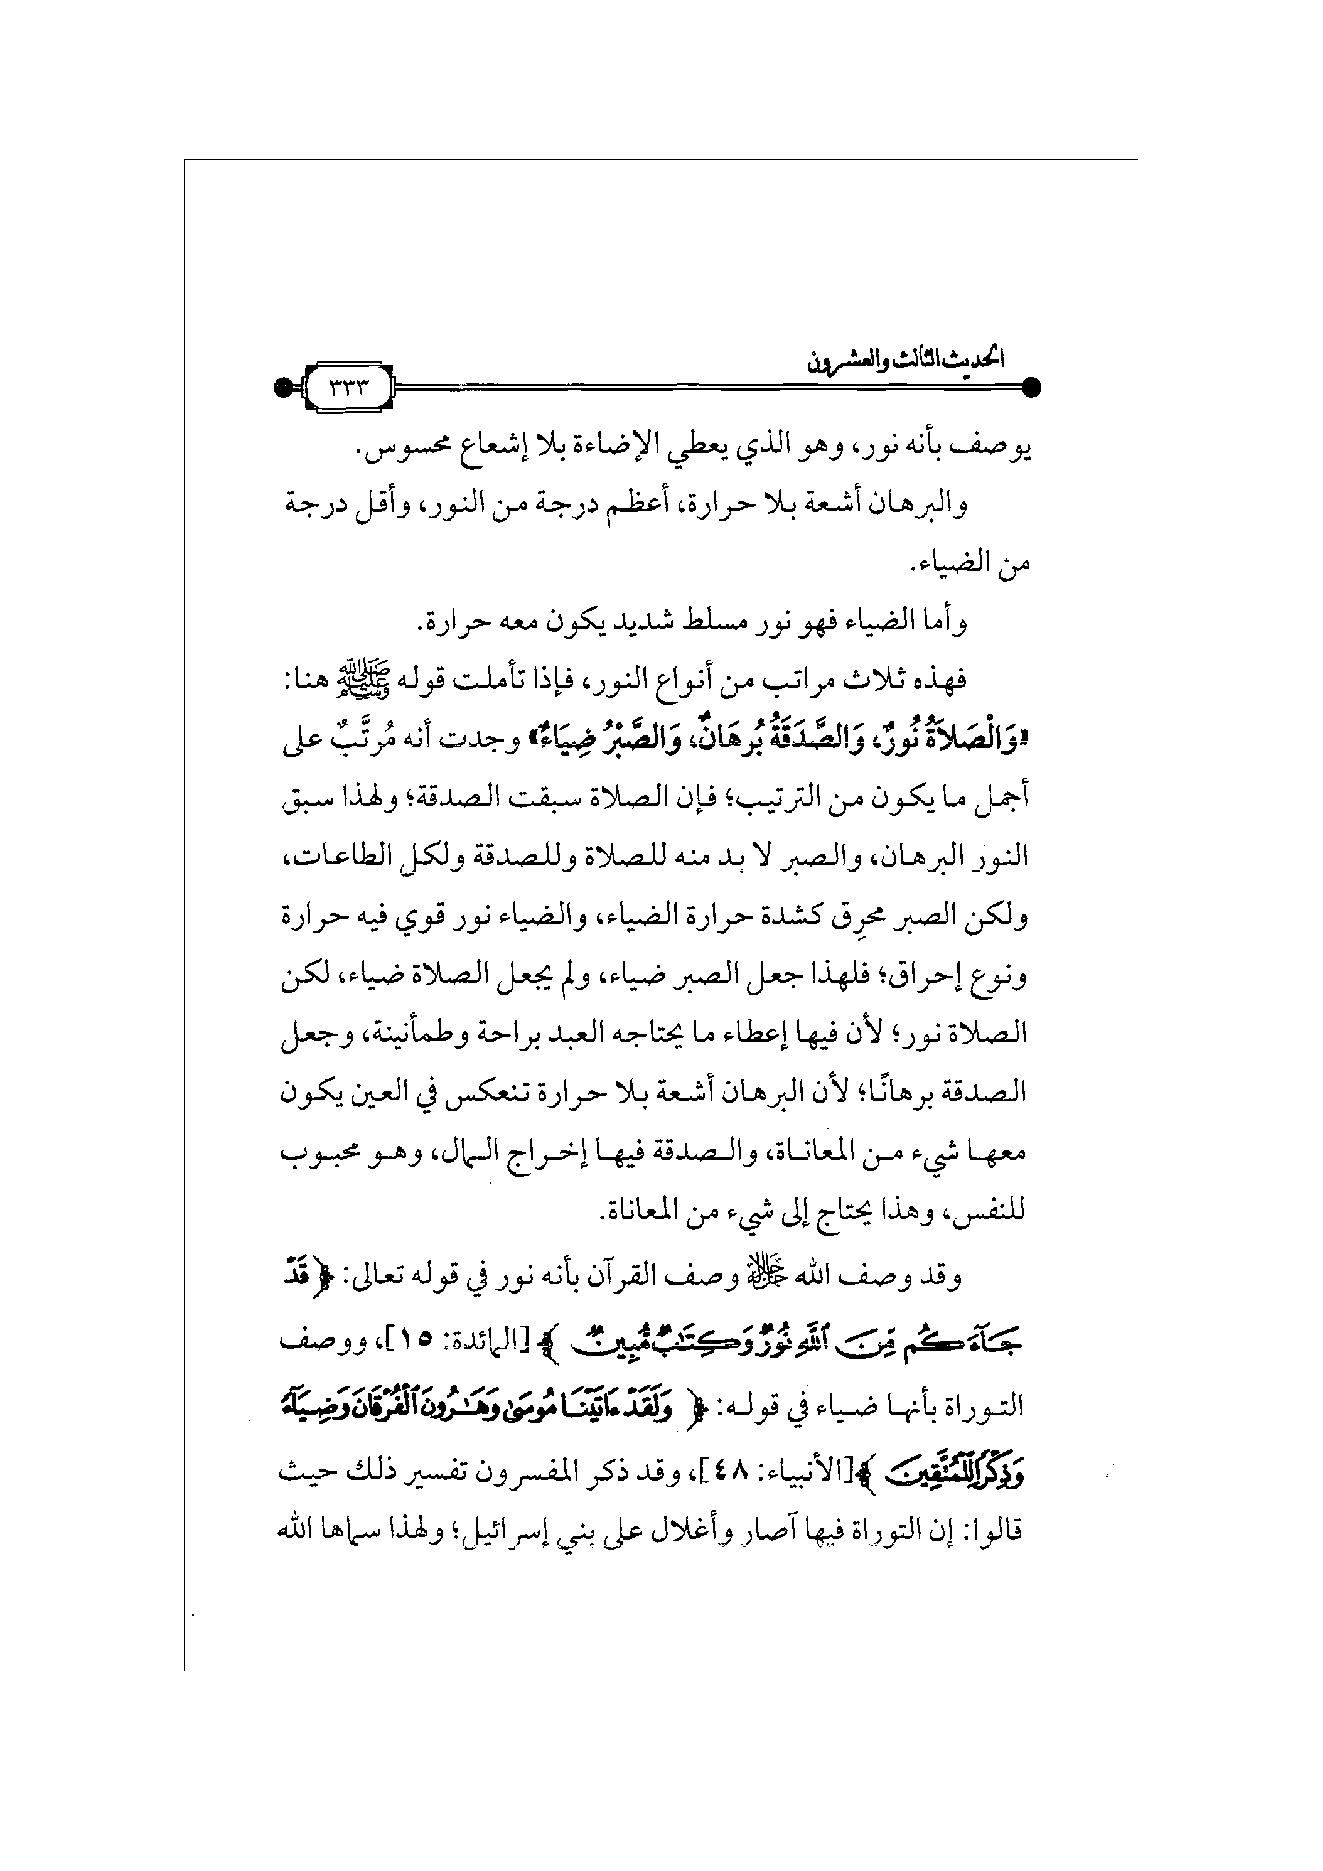 الحديث الثالث والعشرون
٣٣٣
يوصف بأنه نور، وهو الذي يعطي الإضاءة بلا إشعاع محسوس.
والبرهان أشعة بلا حرارة، أعظم درجة من النور، وأقل درجة
من الضياء.
وأما الضياء فهو نور مسلط شديد يكون معه حرارة.
فهذه ثلاث مراتب من أنواع النور، فإذا تأملت قوله ﷺ هنا:
«وَالْصَلاَةُ نُورٌ، وَالصَّدَقَةُ بُرهَانٌ، وَالصَّبْرُ ضِيَاءٌ» وجدت أنه مُرتَّبٌ على
أجمل ما يكون من الترتيب؛ فإن الصلاة سبقت الصدقة؛ ولهذا سبق
النور البرهان، والصبر لا بد منه للصلاة وللصدقة ولكل الطاعات،
ولكن الصبر محرِق كشدة حرارة الضياء، والضياء نور قوي فيه حرارة
ونوع إحراق؛ فلهذا جعل الصبر ضياء، ولم يجعل الصلاة ضياء، لكن
الصلاة نور؛ لأن فيها إعطاء ما يحتاجه العبد براحة وطمأنينة، وجعل
الصدقة برهانًا؛ لأن البرهان أشعة بلا حرارة تنعكس في العين يكون
معها شيء من المعاناة، والصدقة فيها إخراج المال، وهو محبوب
للنفس، وهذا يحتاج إلى شيء من المعاناة.
وقد وصف الله ﷻ وصف القرآن بأنه نور في قوله تعالى: ﴿ قَدْ
جَآءَكُم مِّنَ ٱللَّهِ نُورٌ وَكِتَٰبٌ مُّبِينٌ ﴾ [المائدة: ١٥]، ووصف
التوراة بأنها ضياء في قوله: ﴿ وَلَقَدْ ءَاتَيْنَا مُوسَىٰ وَهَٰرُونَ ٱلْفُرْقَانَ وَضِيَآءً
وَذِكْرًا لِّلْمُتَّقِينَ ﴾[الأنبياء: ٤٨]، وقد ذكر المفسرون تفسير ذلك حيث
قالوا: إن التوراة فيها آصار وأغلال على بني إسرائيل؛ ولهذا سماها الله